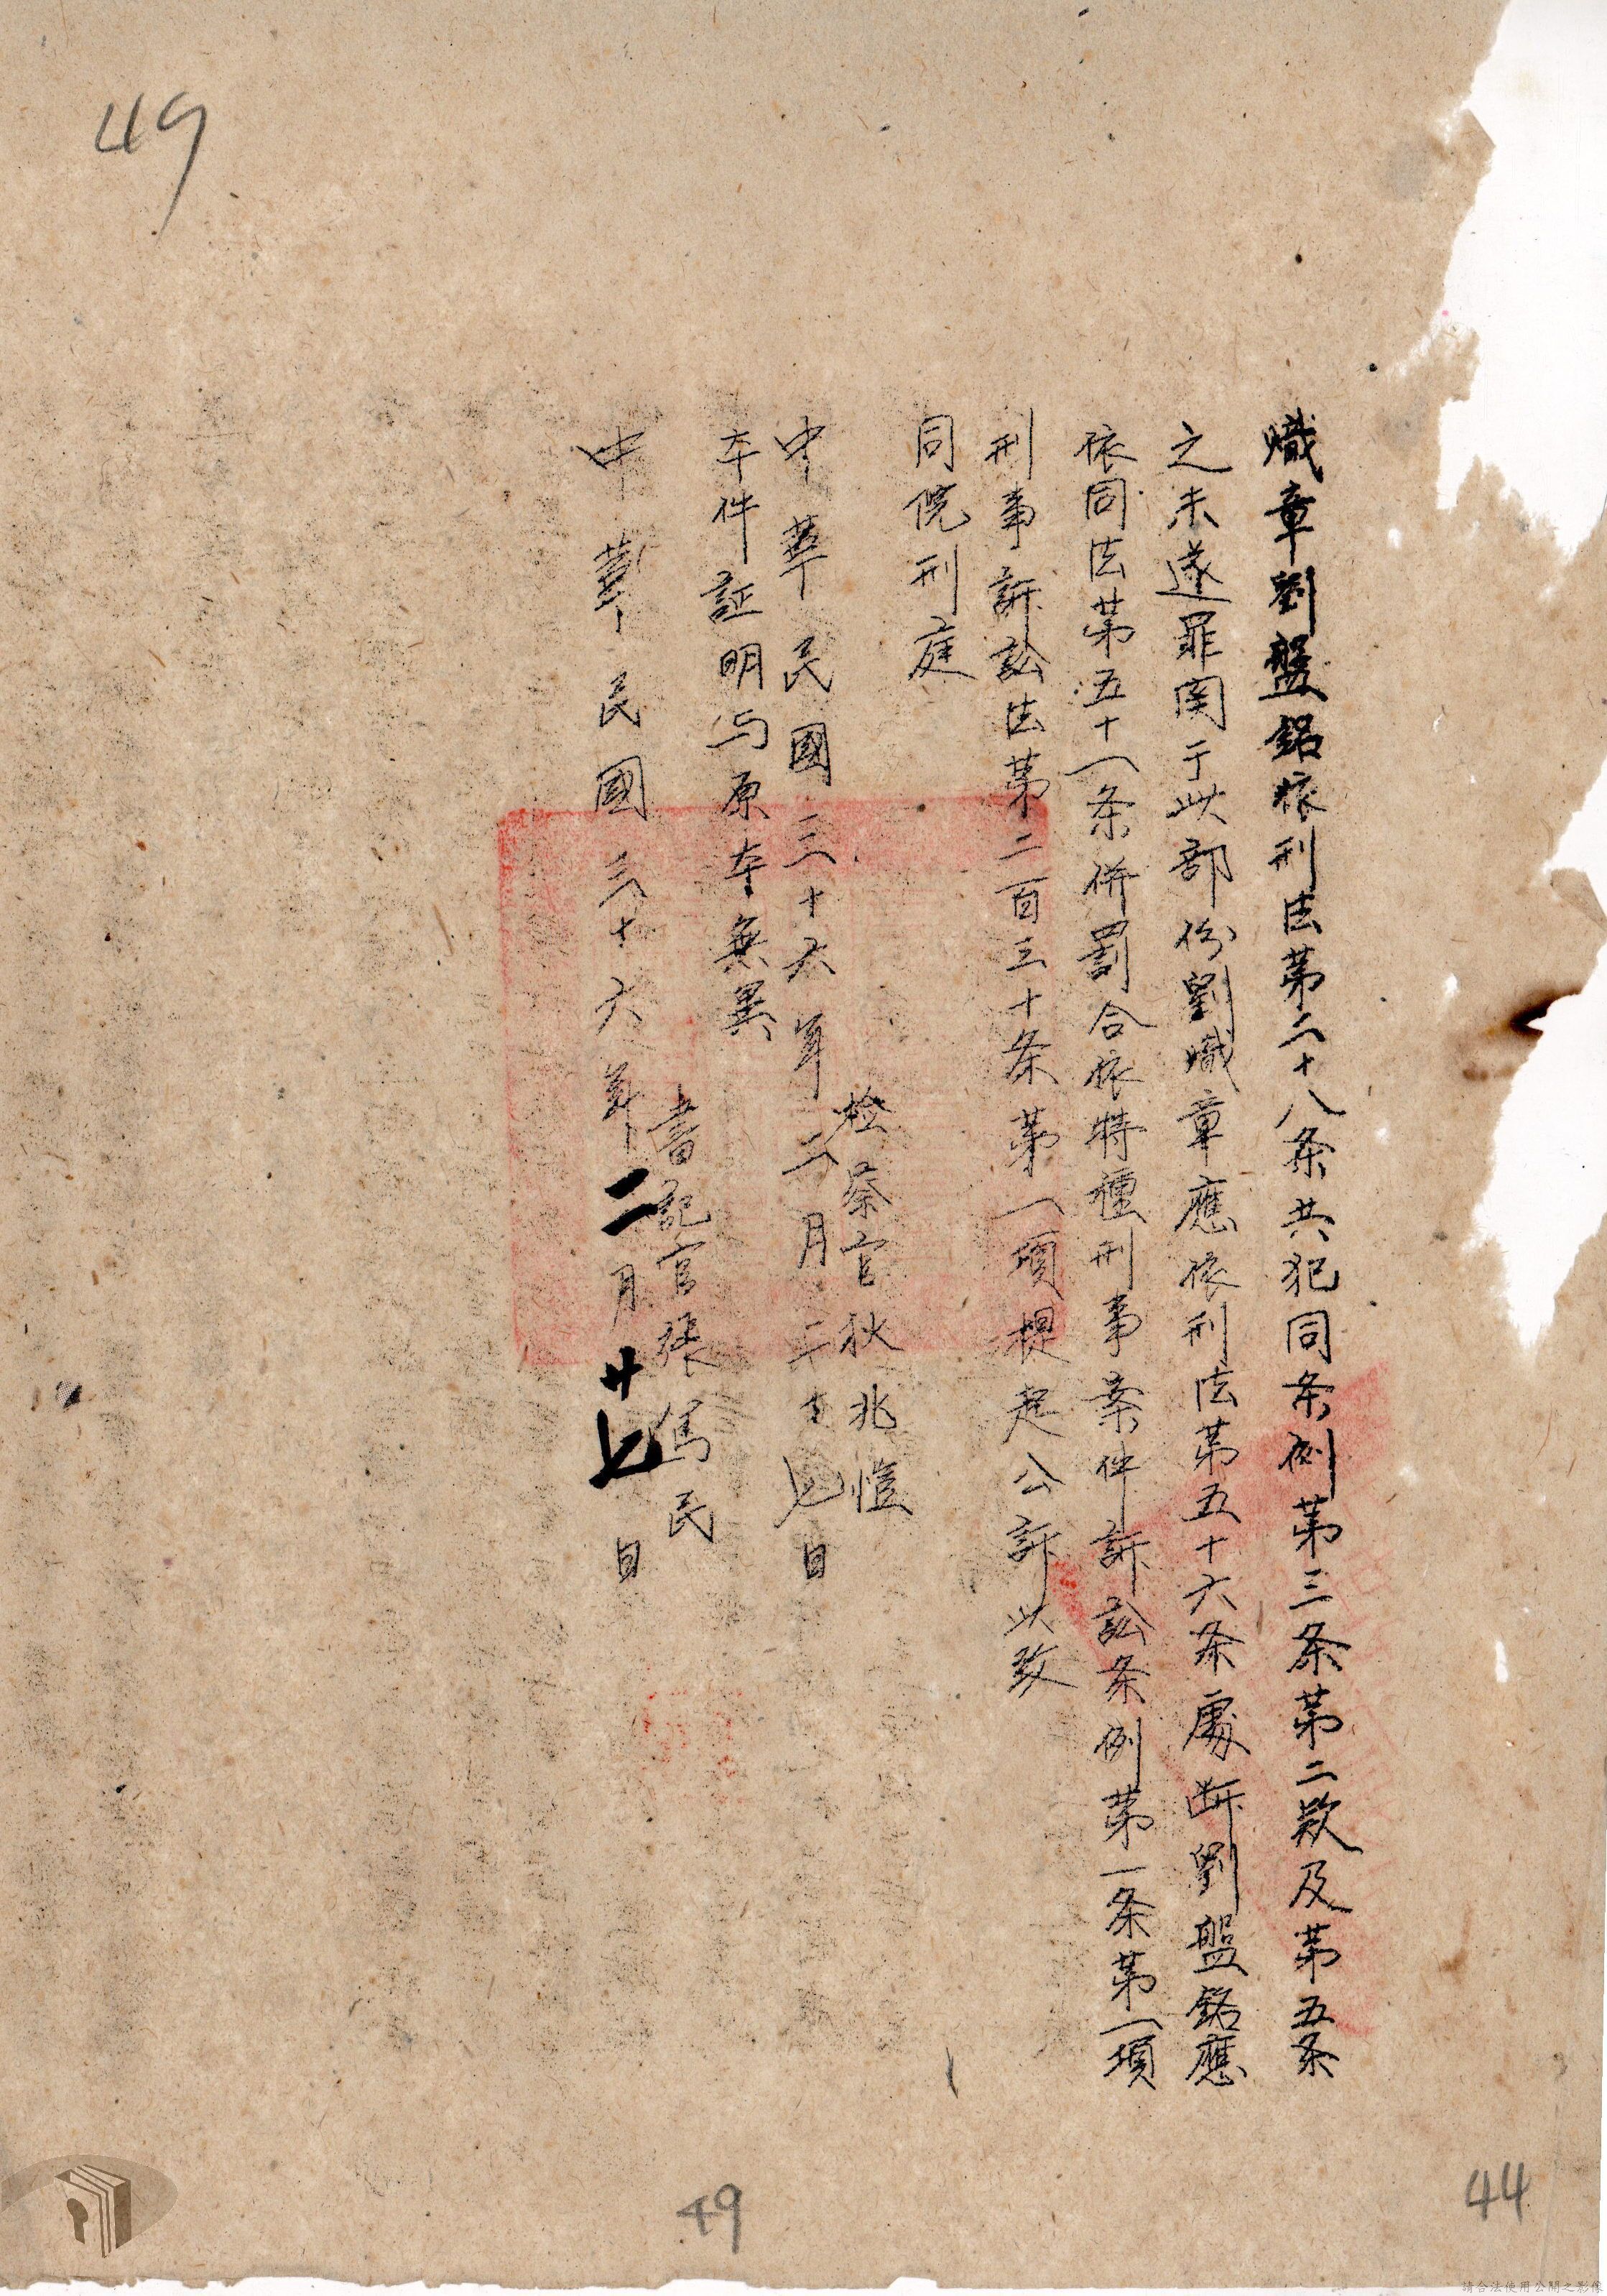 49
熾章劉盤銘依刑法第二十八条共犯同条例第三条第二款及第五条
之未遂罪関于此部份劉熾章應依刑法第五十六条處断劉盤銘應
依同法第五十一条併罰合依特種刑事案件訴訟条例第一条第一項
刑事訴訟法第二百三十条第一項提起公訴此致
同院刑庭
檢察官狄兆愷
中華民國三十六年二月二十七日
本件証明与原本無異
書記官張馬民
中華民國三十六年二月廿七日
49
44
請合法使用公開之影像